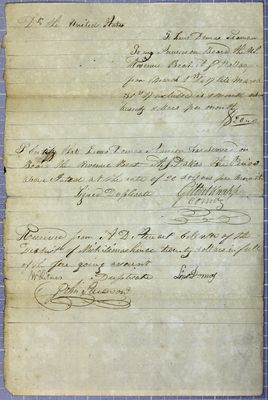 Dr the United States
To Lewis Demas Seaman
To my Services on Board the U.S.
Revenue Boat A J Dallas
from March 1st to the 31st March
31st included is 1 month at
twenty dollars per month
$20.00
I Certify that Lewis Demas Seaman has served on
Board the Revenue Boat A J Dallas the Period
above Stated at the rate of 20 dollars per month
Signed Duplicate
Comdg
Received from A D Stuart Collector of the
District of Michilimackinac twenty dollars in full
of the fore going account
Witness Duplicate
John